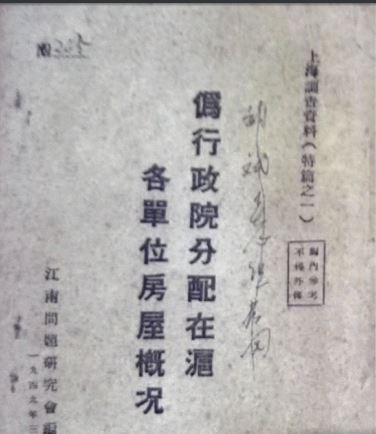 上海調查資料(特篇之一)
內參考
不得外傳
僞行政院分配在滬
各單位房屋概况
江南問題研究會編
一九四九年三